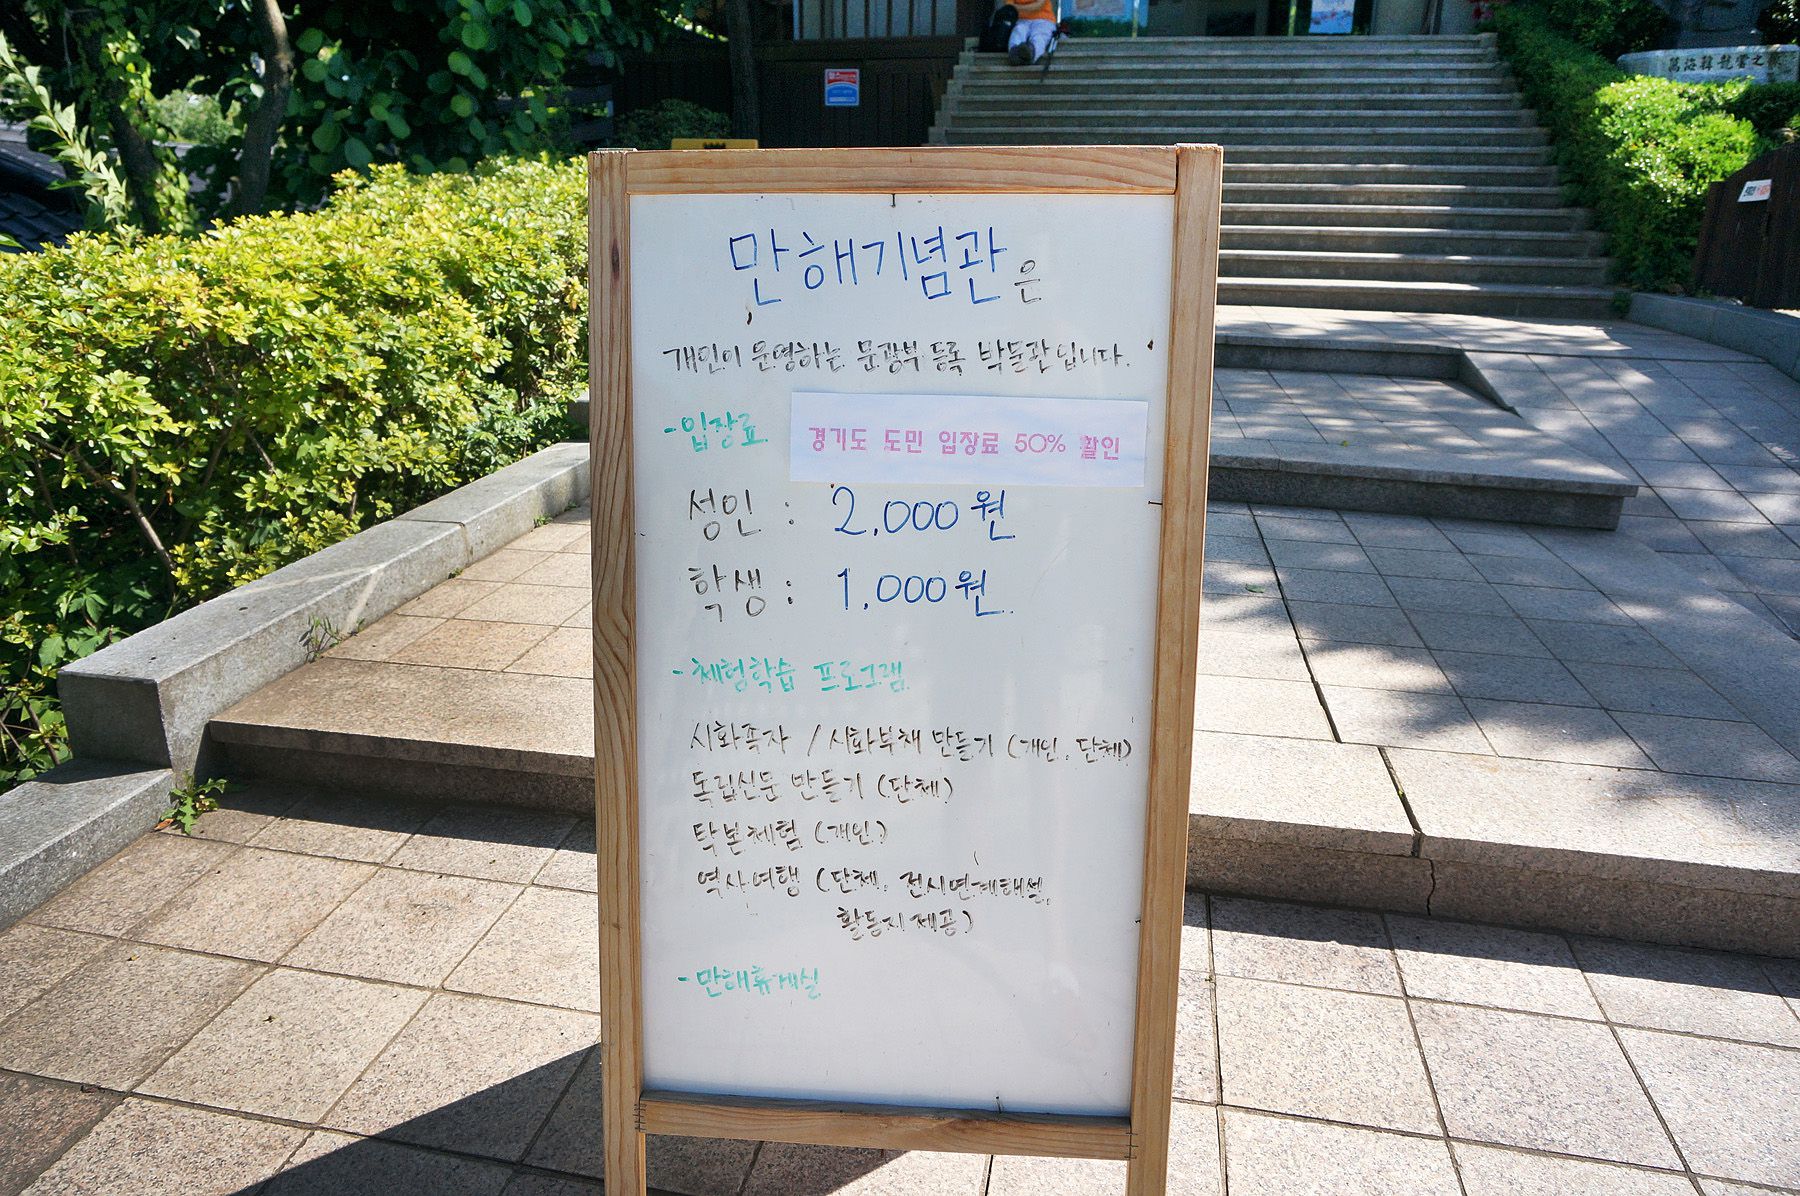 만해기념관은
개인이 운영하는 문광부 등록 박물관입니다.
-입장료
경기도 도민 입장료 50% 할인
성인 : 2,000원
학생 : 1,000원
-체험학습 프로그램
시화족자 / 시화부채 만들기 (개인, 단체)
독립신문 만들기 (단체)
탁본체험 (개인)
역사여행 (단체, 전시연계해설,
활동지 제공)
-만해휴게실